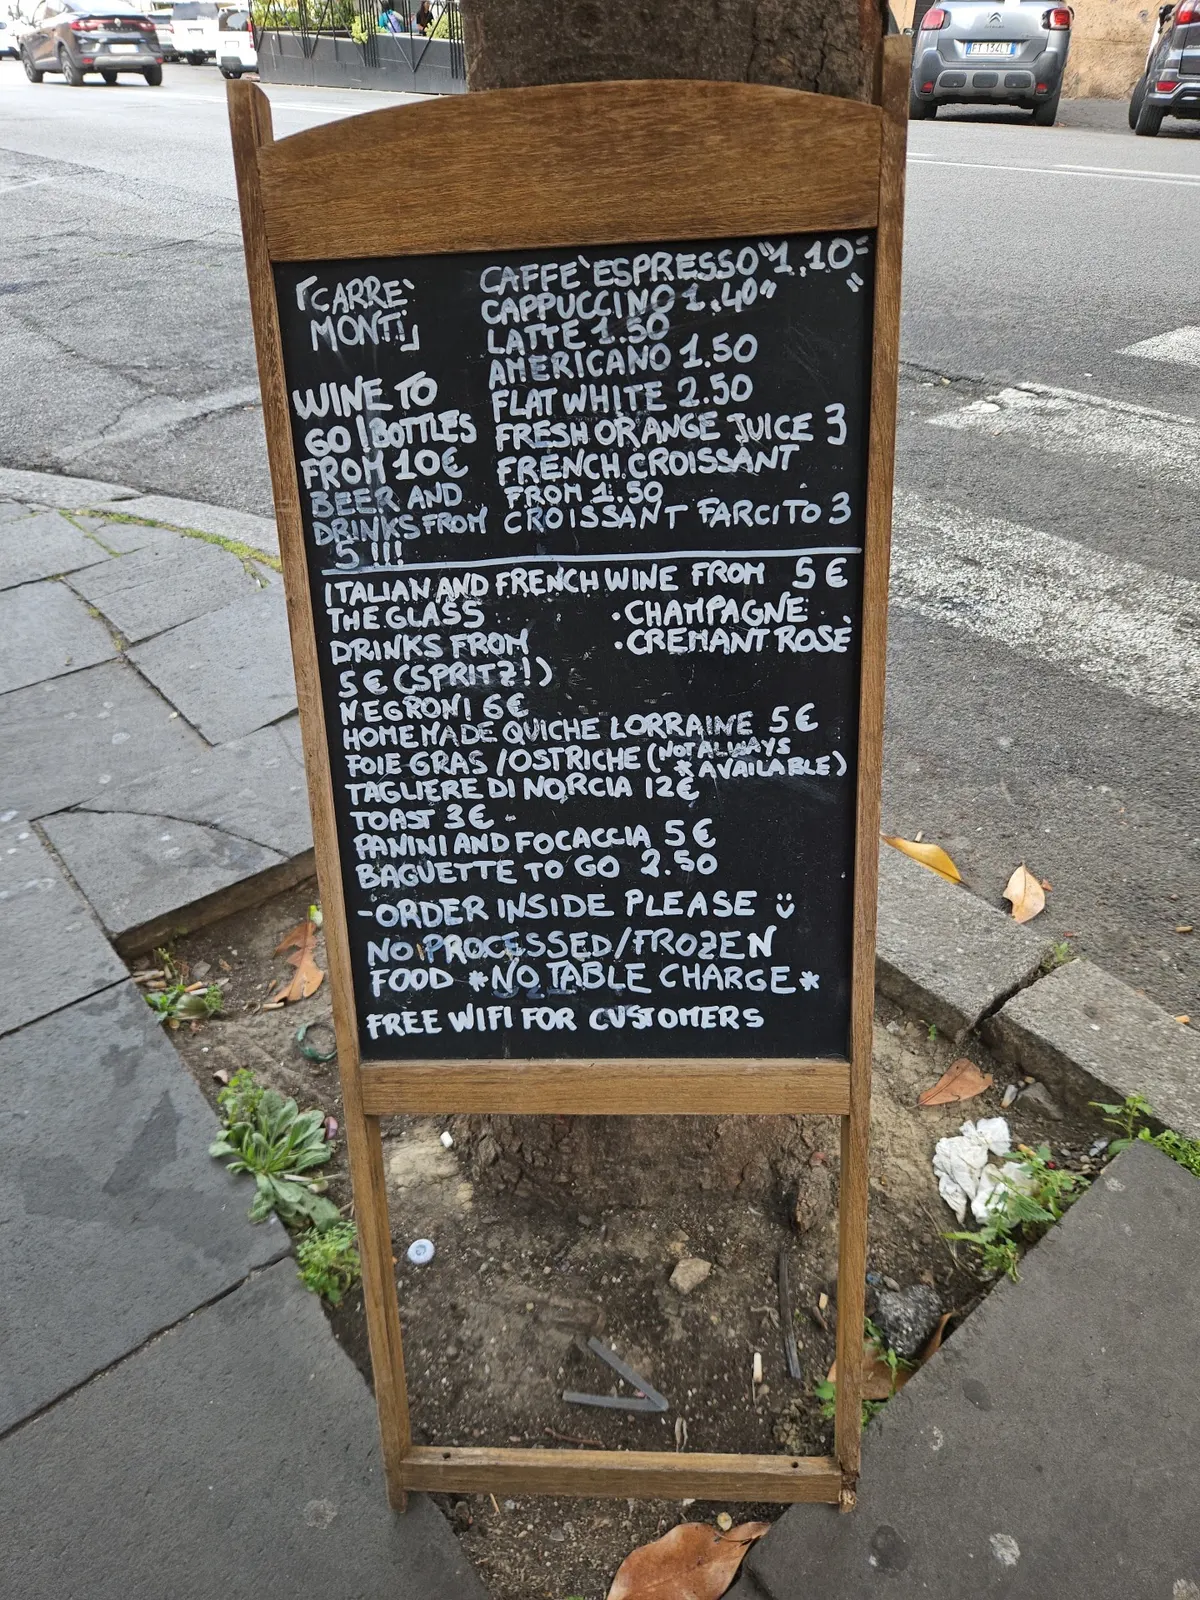 「CARRE`
MONTi」
WINE TO
GO! BOTTLES
FROM 10€
BEER AND
DRINKS FROM
5 !!!
CAFFE` ESPRESSO "1.10=
CAPPUCCINO 1.40"        "
LATTE 1.50
AMERICANO 1.50
FLAT WHITE 2.50
FRESH ORANGE JUICE 3
FRENCH CROISSANT
FROM 1.50
CROISSANT FARCITO 3
ITALIAN AND FRENCH WINE FROM 5€
THE GLASS
·CHAMPAGNE
·CREMANT ROSÉ
DRINKS FROM
5€ (SPRITZ!)
NEGRONI 6€
HOMEMADE QUICHE LORRAINE 5€
FOIE GRAS / OSTRICHE (NOT ALWAYS
* AVAILABLE)
TAGLIERE DI NORCIA 12€
TOAST 3€
PANINI AND FOCACCIA 5€
BAGUETTE TO GO 2.50
-ORDER INSIDE PLEASE ü
NO PROCESSED/FROZEN
FOOD *NO TABLE CHARGE*
FREE WIFI FOR CUSTOMERS